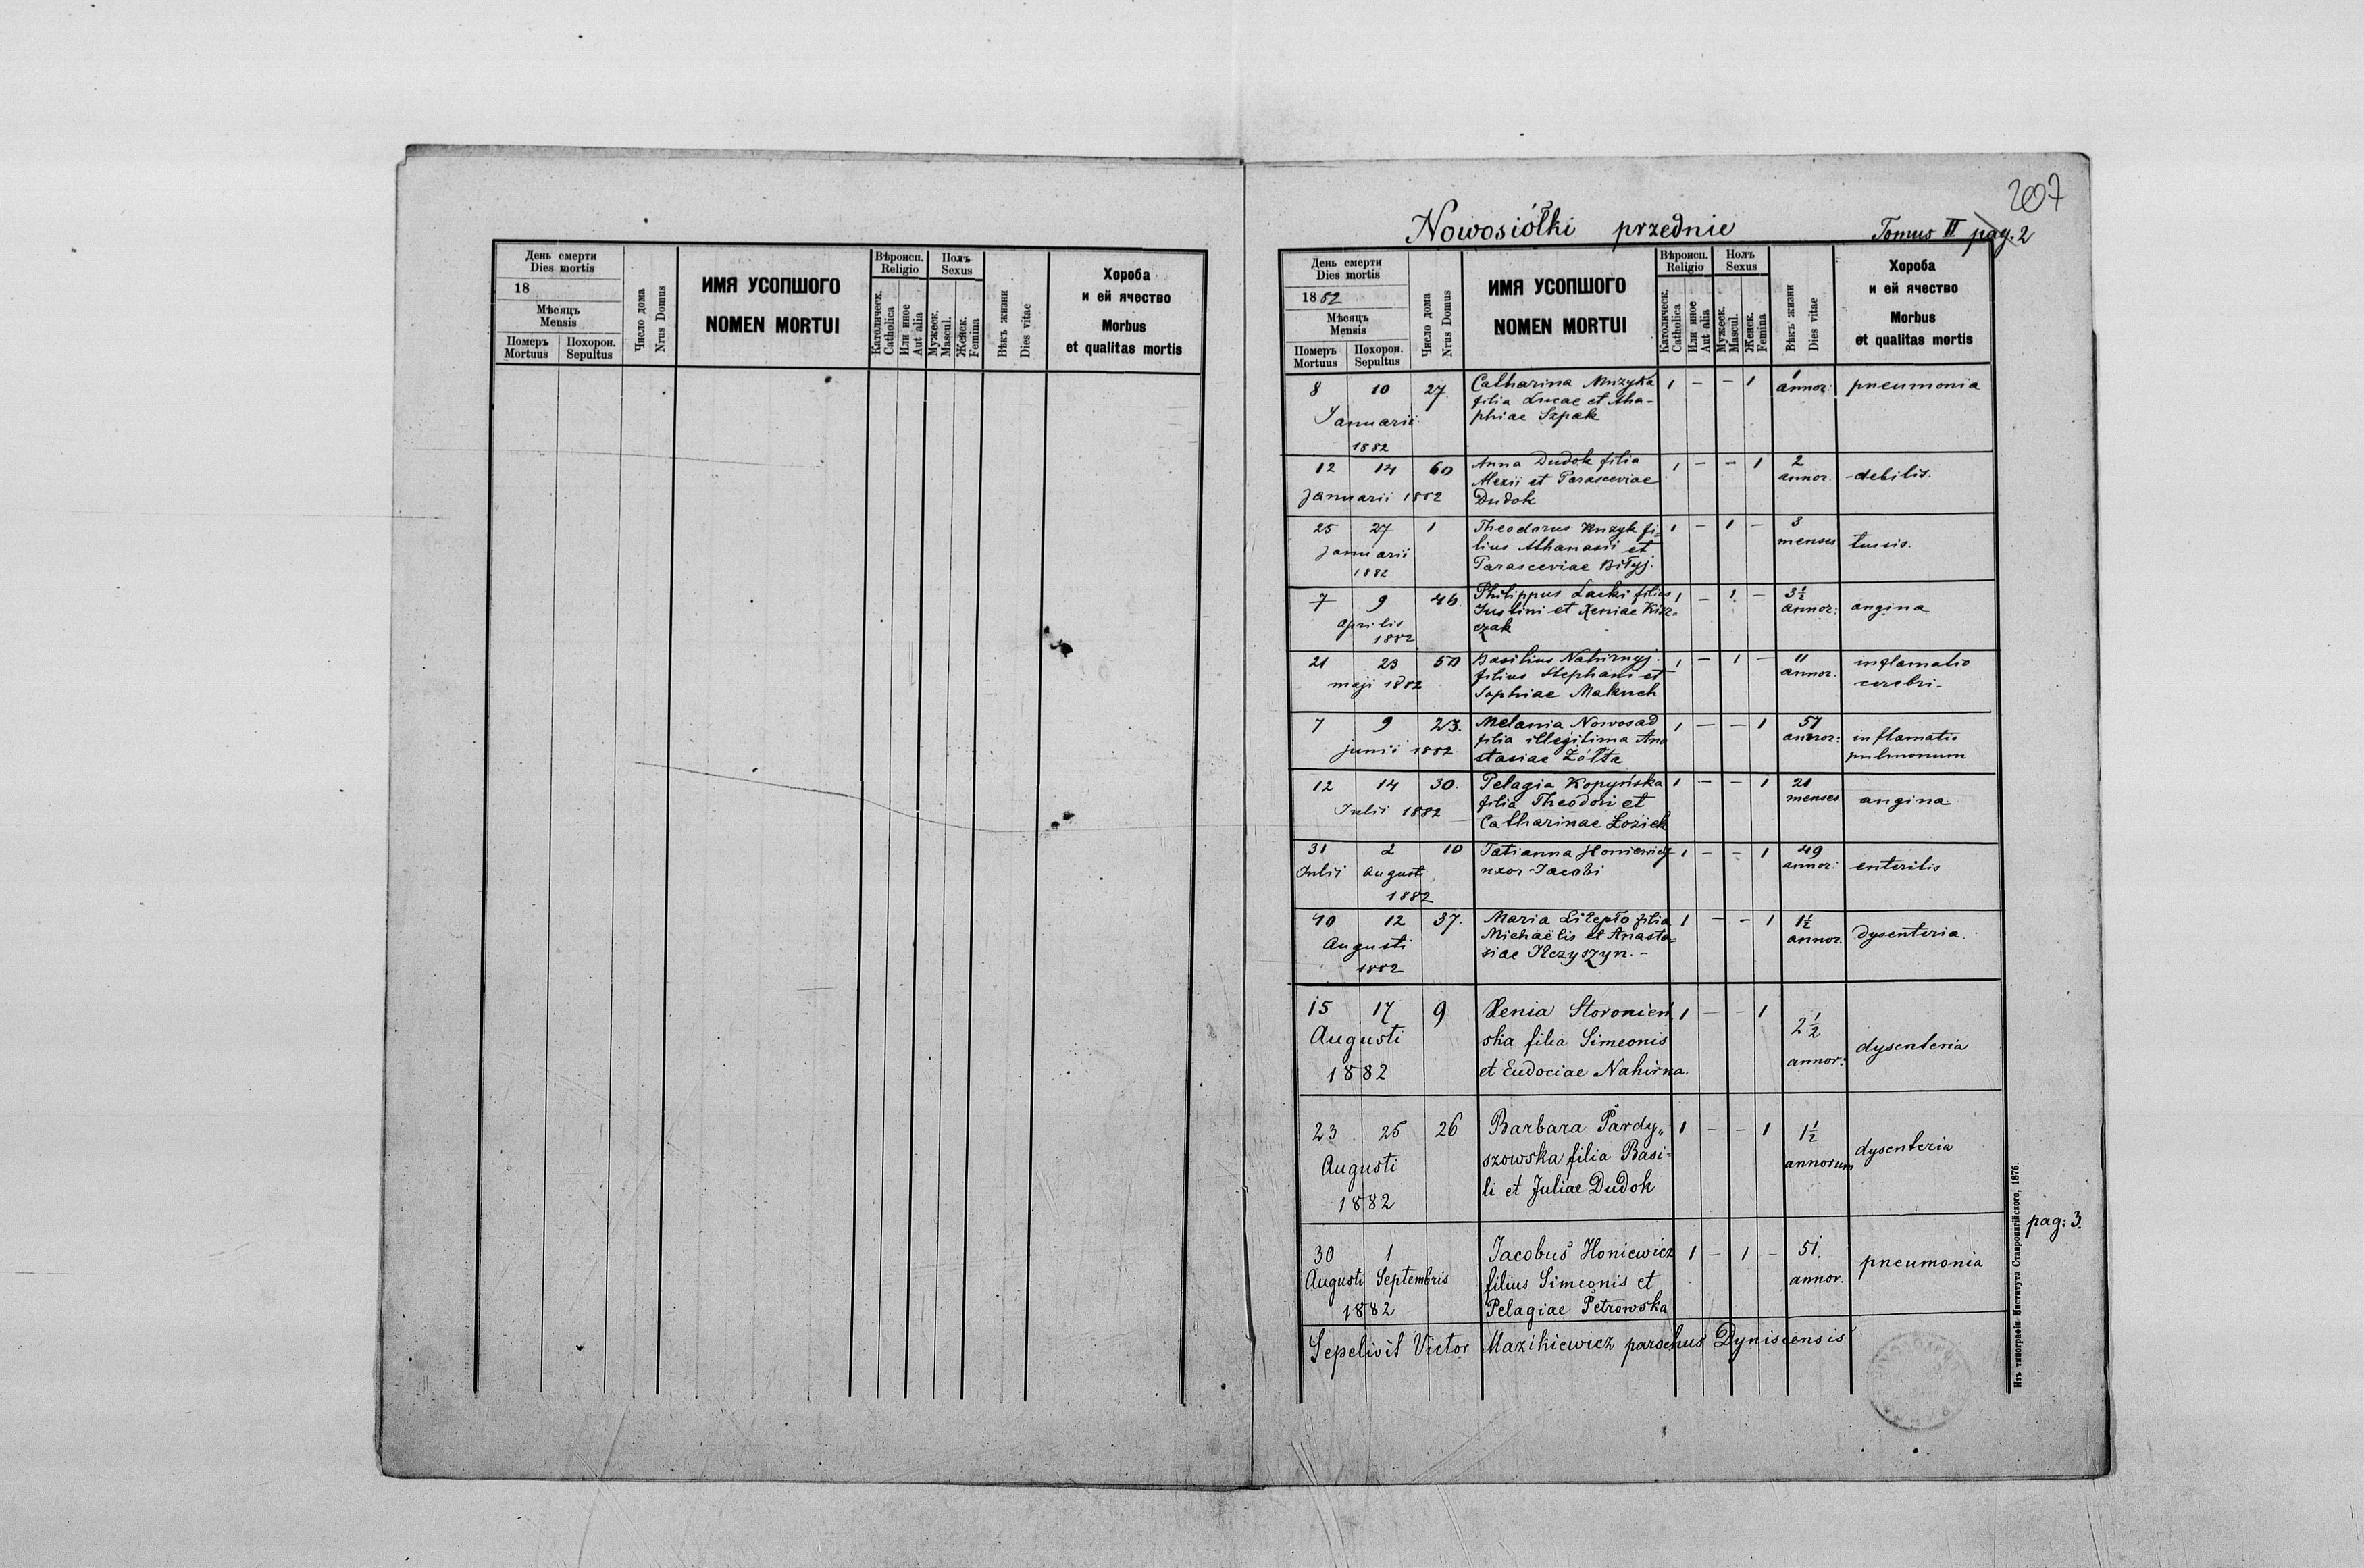 207
Nowosiółki przednie
Tomus II pag. 2
День смерти
Dies mortis
18
Мѣсяць
Mensis
Померъ
Mortuus
Похорон.
Sepultus
Число дома
Nrus Domus
ИМЯ УСОПШОГО
NOMEN MORTUI
Вѣроисп.
Religio
Католическ.
Catholica
Или иное
Aut alia
Полъ
Sexus
Мужеск.
Mascul.
Женск.
Femina
Вѣкъ жизни
Dies vitae
Хороба
и ей ячество
Morbus
et qualitas mortis
День смерти
Dies mortis
1882
Мѣсяць
Mensis
Померъ
Mortuus
Похорон.
Sepultus
Число дома
Nrus Domus
ИМЯ УСОПШОГО
NOMEN MORTUI
Вѣроисп.
Religio
Католическ.
Catholica
Или иное
Aut alia
Полъ
Sexus
Мужеск.
Mascul.
Женск.
Femina
Вѣкъ жизни
Dies vitae
Хороба
и ей ячество
Morbus
et qualitas mortis
8 10 27 Catharina Muzyka 1 — — 1 1 annor: pneumonia
filia Lucae et Aha-
Januarii phiae Szpak
1882
12 14 60 Anna Dudok filia 1 — — 1 2 annor. debilis.
Alexii et Parasceviae
Januarii 1882 Dudok
25 27 1 Theodorus Kuzyk fi- 1 — 1 — 3 menses tussis.
Januarii lius Athanasii et
1882 Parasceviae Biłyj.
7 9 46 Philippus Lacki filius 1 — 1 — 3½ annor: angina
Aprilis Justini et Xeniae
1882 czak
21 23 50 Basilius Nahirnyj 1 — 1 — 11 annor. inflamatio
maji 1882 filius Stephani et cerebri-
Sophiae Makuch
7 9 23. Melania Nowosad 1 — — 1 57 annor: inflamatio
junii 1882 filia illegitima Ana pulmonum
stasiae Żółta
12 14 30. Pelagia Kopyńska 1 — — 1 21 menses angina
Julii 1882 filia Theodori et
Catharinae Łozick
31 2 10 Tatianna Honiewicz 1 — — 1 49 annor: enteritis
Julii Augusti uxor Jacobi
1882
10 12 37. Maria filia 1 — — 1 1½ annor. dysenteria.
Augusti Michaëlis et Anasta-
1882 siae Ilczyszyn. -
15 17 9 Xenia Storonień 1 — — 1 2½ annor: dysenteria
Augusti ska filia Simeonis
1882 et Eudociae Nahirna.
23 25 26 Barbara Pardy„ 1 — — 1 1½ annorum dysenteria
Augusti szowska filia Basi-
1882 li et Juliae Dudok
30 1 Jacobus Honiewicz 1 — 1 — 51. annor. pneumonia
Augusti Septembris filius Simeonis et
1882 Pelagiae Petrowska
Sepelivit Victor Mazikiewicz parochus Dyniscensis
Изъ типографіи Института Ставропигійского, 1876.
pag: 3.